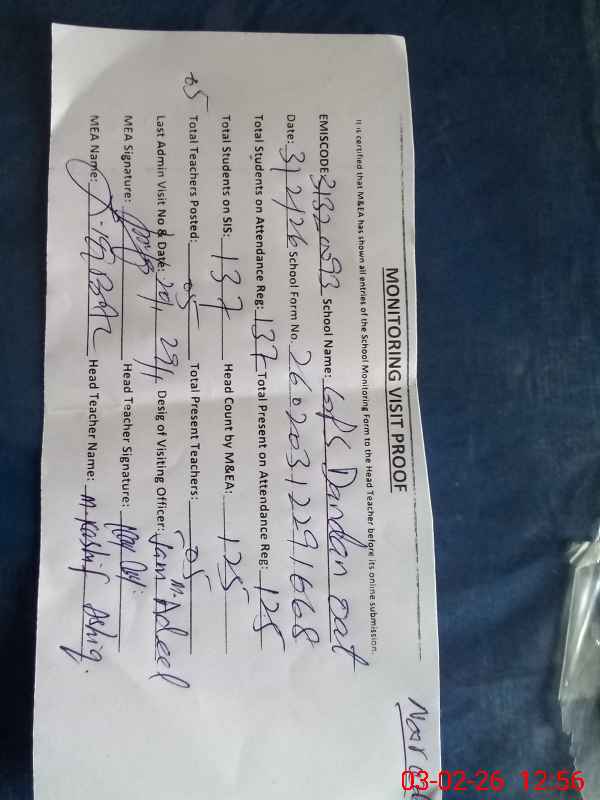 MONITORING VISIT PROOF
It is certified that M&EA has shown all entries of the School Monitoring Form to the Head Teacher before its online submission.
EMISCODE: 31320093 School Name: GPS Dandan oat
Date: 3/2/26 School Form No. 26020312291668
Total Students on Attendance Reg: 137 Total Present on Attendance Reg: 125
Total Students on SIS: 137 Head Count by M&EA: 125
Total Teachers Posted: 05 Total Present Teachers: 05
Last Admin Visit No & Date: 29/1 Desig of Visiting Officer: M. Adeel
MEA Signature: Head Teacher Signature:
MEA Name: Head Teacher Name: M. Kashif Ashiq.
03-02-26 12:56